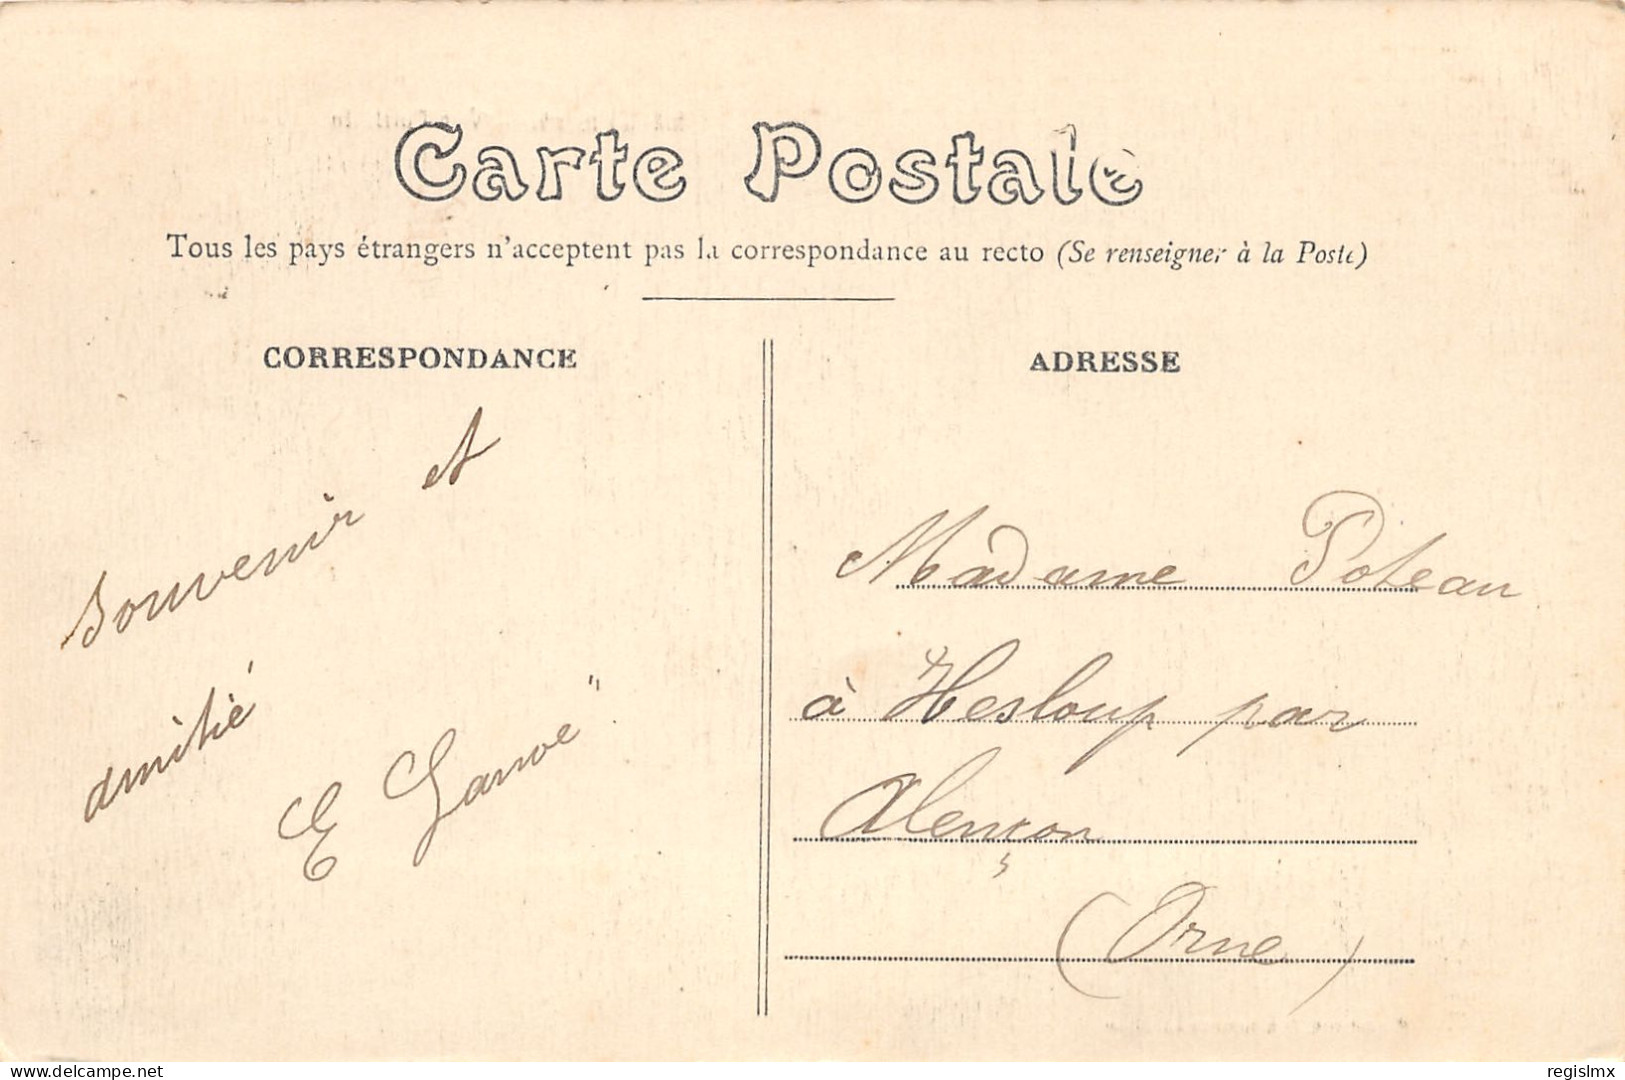 Carte Postale
Tous les pays étrangers n'acceptent pas la correspondance au recto (Se renseigner à la Poste)
CORRESPONDANCE
Souvenir et
amitié
E
ADRESSE
Madame Poteau
à Hesloup par
Alençon
(Orne)
delcampe.net
regislmx